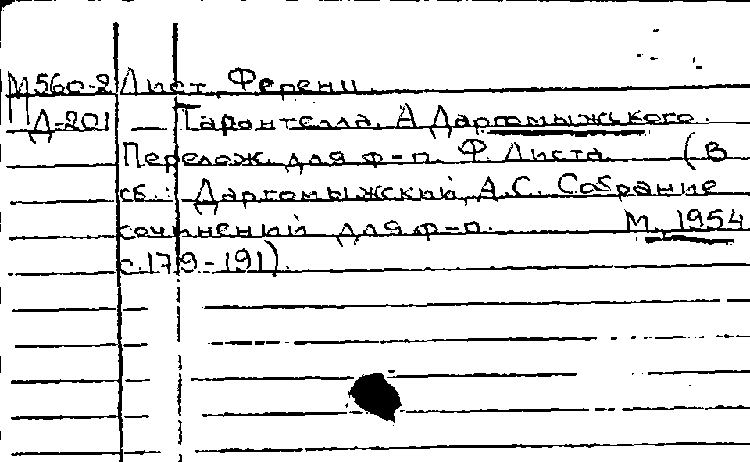 М560-2 Лист, Ференц.
Д-201 — Тарантелла. А Даргомыжского.
Перелож. для ф-п. Ф. Листа. (В
сб.: Даргомыжский, А.С. Собрание
сочинений для ф-п. М., 1954
с.179-191).